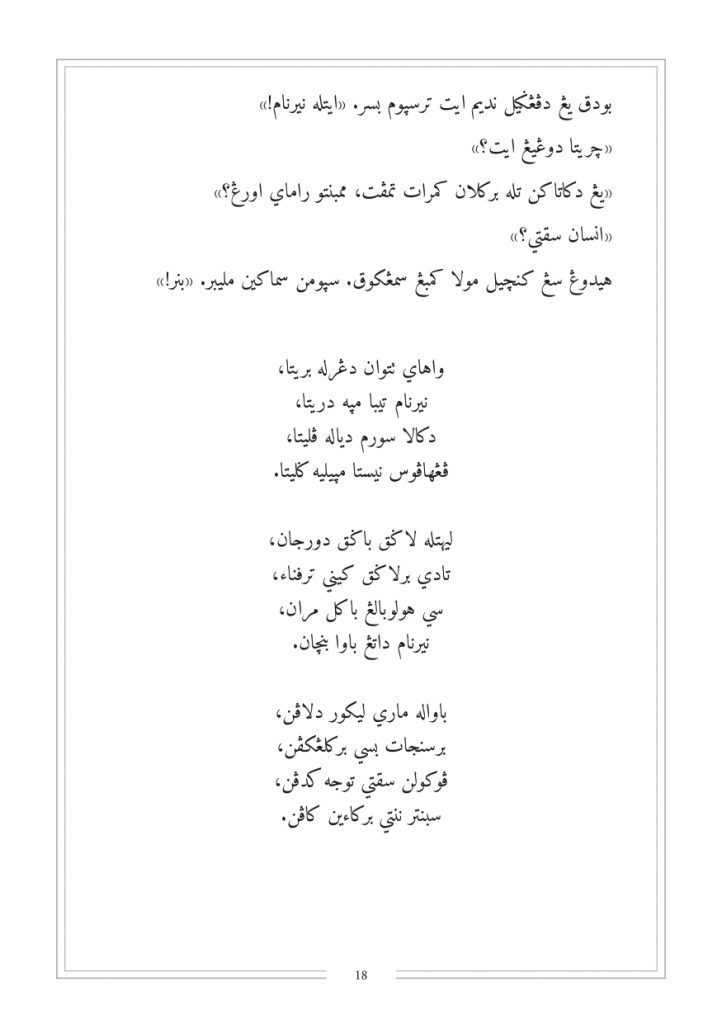 بودق يڠ دڤڠݢيل نديم ايت ترسڽوم بسر. «ايتله نيرنام!»
«چريتا دوڠيڠ ايت؟»
«يڠ دكاتاكن تله بركلان كمرات تمڤت، ممبنتو راماي اورڠ؟»
«انسان سقتي؟»
هيدوڠ سڠ كنچيل مولا كمبڠ سمڠكوق. سڽومن سماكين مليبر. «بنر!»
واهاي تتوان دڠرله بريتا،
نيرنام تيبا مڽه دريتا،
دكالا سورم دياله ڤليتا،
ڤڠهاڤوس نيستا مڽيليه ݢليتا.
ليهتله لاݢق باݢق دورجان،
تادي برلاݢق كيني ترفناء،
سي هولوبالڠ باكل مران،
نيرنام داتڠ باوا بنچان.
باواله ماري ليكور دلاڤن،
برسنجات بسي بركلڠكڤن،
ڤوكولن سقتي توجه كدڤن،
سبنتر ننتي بركاءين كاڤن.
18